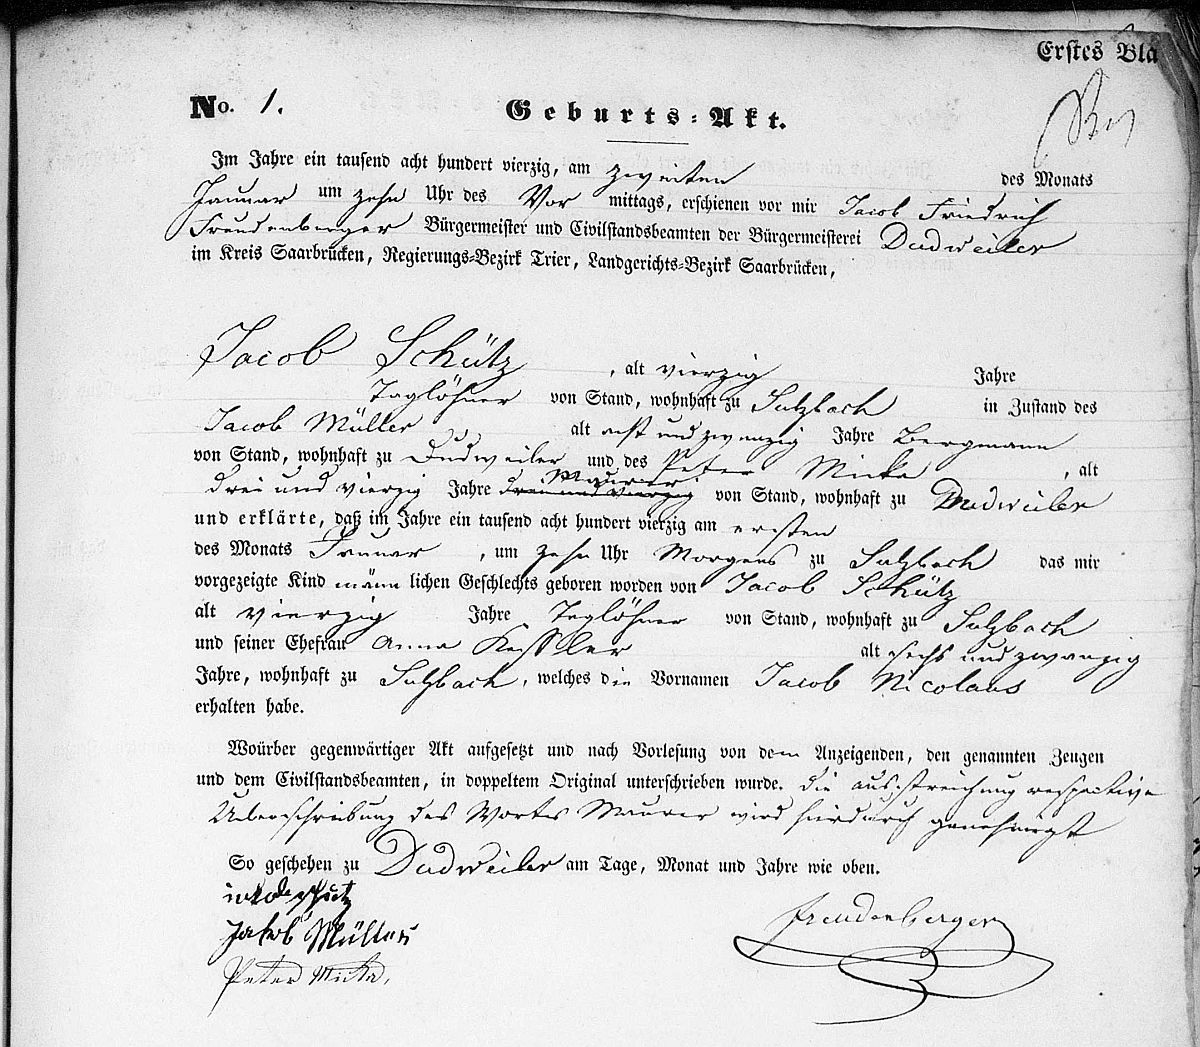 Erstes Bla
No. 1.
Geburts-Akt.
Im Jahre ein tausend acht hundert vierzig, am zweiten des Monats
Januar um zehn Uhr des Vor mittags, erschienen vor mir Jacob Friedrich
Freudenberger Bürgermeister und Civilstandsbeamten der Bürgermeisterei Dudweiler
im Kreis Saarbrücken, Regierungs-Bezirk Trier, Landgerichts-Bezirk Saarbrücken,
Jacob Schütz, alt vierzig Jahre
Taglöhner von Stand, wohnhaft zu Sulzbach in Zustand des
Jacob Müller alt acht und zwanzig Jahre Bergmann
von Stand, wohnhaft zu Dudweiler und des Peter Micka, alt
drei und vierzig Jahre drei und vierzig Maurer von Stand, wohnhaft zu Dudweiler
und erklärte, daß im Jahre ein tausend acht hundert vierzig am ersten
des Monats Januar, um zehn Uhr Morgens zu Sulzbach das mir
vorgezeigte Kind männ lichen Geschlechts geboren worden von Jacob Schütz
alt vierzig Jahre Taglöhner von Stand, wohnhaft zu Sulzbach
und seiner Ehefrau Anna Kessler alt sechs und zwanzig
Jahre, wohnhaft zu Sulzbach, welches die Vornamen Jacob Nicolaus
erhalten habe.
Woürber gegenwärtiger Akt aufgesetzt und nach Vorlesung von dem Anzeigenden, den genannten Zeugen
und dem Civilstandsbeamten, in doppeltem Original unterschrieben wurde. die ausstreichung respective
Ueberschreibung des Wortes Maurer wird hierdurch genehmigt
So geschehen zu Dudweiler am Tage, Monat und Jahre wie oben.
Jakob Müller
Freudenberger
Peter Micka,